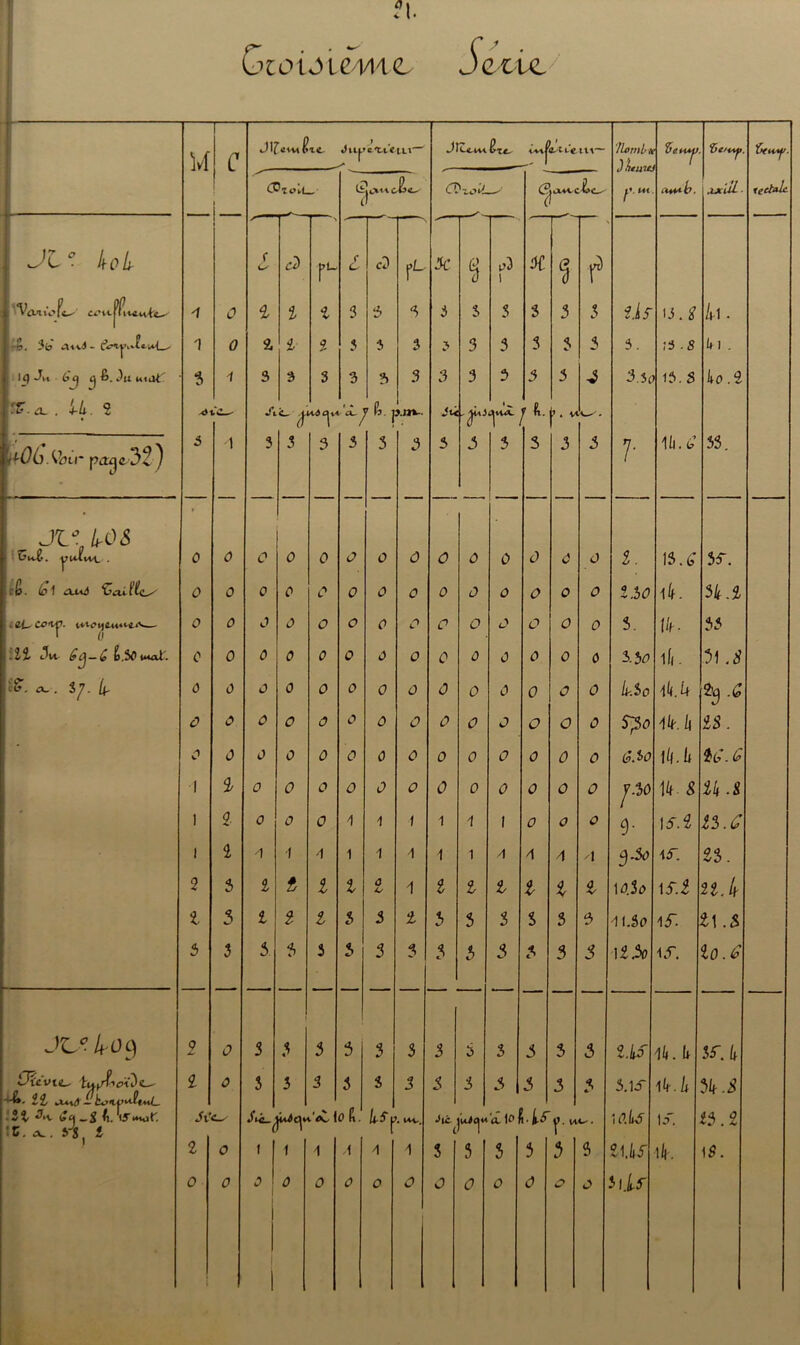 21.
Troisième Série
M C Membre supérieur Membre inférieur Nombre d'heures p. m. Temp. amb. Temp. axill. Temp. rectale
Droit Gauche Droit Gauche
N° 404 L D pL L D pL H G pd H G pd
Variole confluente 1 0 2 2 2 3 3 3 3 3 3 3 3 3 2.45 13.8 41.
F. 36 ans - corpulent 1 0 2 2 2 3 3 3 3 3 3 3 3 3 3. 13.8 41.
19 Ju 69 9 h. du mat 3 1 3 3 3 3 3 3 3 3 3 3 3 3 3.30 13.8 40.2
T. a. 14. 2 sic Sic jusqu'à 7 h. p. m. Sic jusqu'à 7 h. p. m.
406. Voir page 32) 3 1 3 3 3 3 3 3 3 3 3 3 3 3 7. 14.6 33.
N° 408
Tub. pulm. 0 0 0 0 0 0 0 0 0 0 0 0 0 0 2. 13.6 35.
h. 61 ans Taille 0 0 0 0 0 0 0 0 0 0 0 0 0 0 2.30 14. 34.2
et corp. moyennes 0 0 0 0 0 0 0 0 0 0 0 0 0 0 3. 14. 33
22 Ju 69 - 6 h.30 mat. 0 0 0 0 0 0 0 0 0 0 0 0 0 0 3.30 14. 31.8
T. a. 37. 4 0 0 0 0 0 0 0 0 0 0 0 0 0 0 4.30 14.4 29.6
0 0 0 0 0 0 0 0 0 0 0 0 0 0 5.30 14.4 28.
0 0 0 0 0 0 0 0 0 0 0 0 0 0 6.30 14.4 26.6
1 2 0 0 0 0 0 0 0 0 0 0 0 0 7.30 14 8 24.8
1 2 0 0 0 1 1 1 1 1 1 0 0 0 9. 15.2 23.6
1 2 1 1 1 1 1 1 1 1 1 1 1 1 9.30 15. 23.
2 3 2 2 2 2 2 1 2 2 2 2 2 2 10.30 15.2 22.4
2 3 2 2 2 3 3 2 3 3 3 3 3 3 11.30 15. 21.8
3 3 3 3 3 3 3 3 3 3 3 3 3 3 12.30 15. 20.6
N° 409 2 0 3 3 3 3 3 3 3 3 3 3 3 3 2.45 14.4 35.4
Fièvre typhoïde 2 0 3 3 3 3 3 3 3 3 3 3 3 3 3.15 14.4 34.8
h. 22 ans - corpulent Sic Sic jusqu'à 10 h. 45 p. m. Sic jusqu'à 10 h. 45 p. m. 10.45 15. 23.2
22 Ju 69 - 8 h. 15 mat. 2 0 1 1 1 1 1 1 3 3 3 3 3 3 21.45 14. 18.
T. a. 38, 2 0 0 0 0 0 0 0 0 0 0 0 0 0 0 31.45